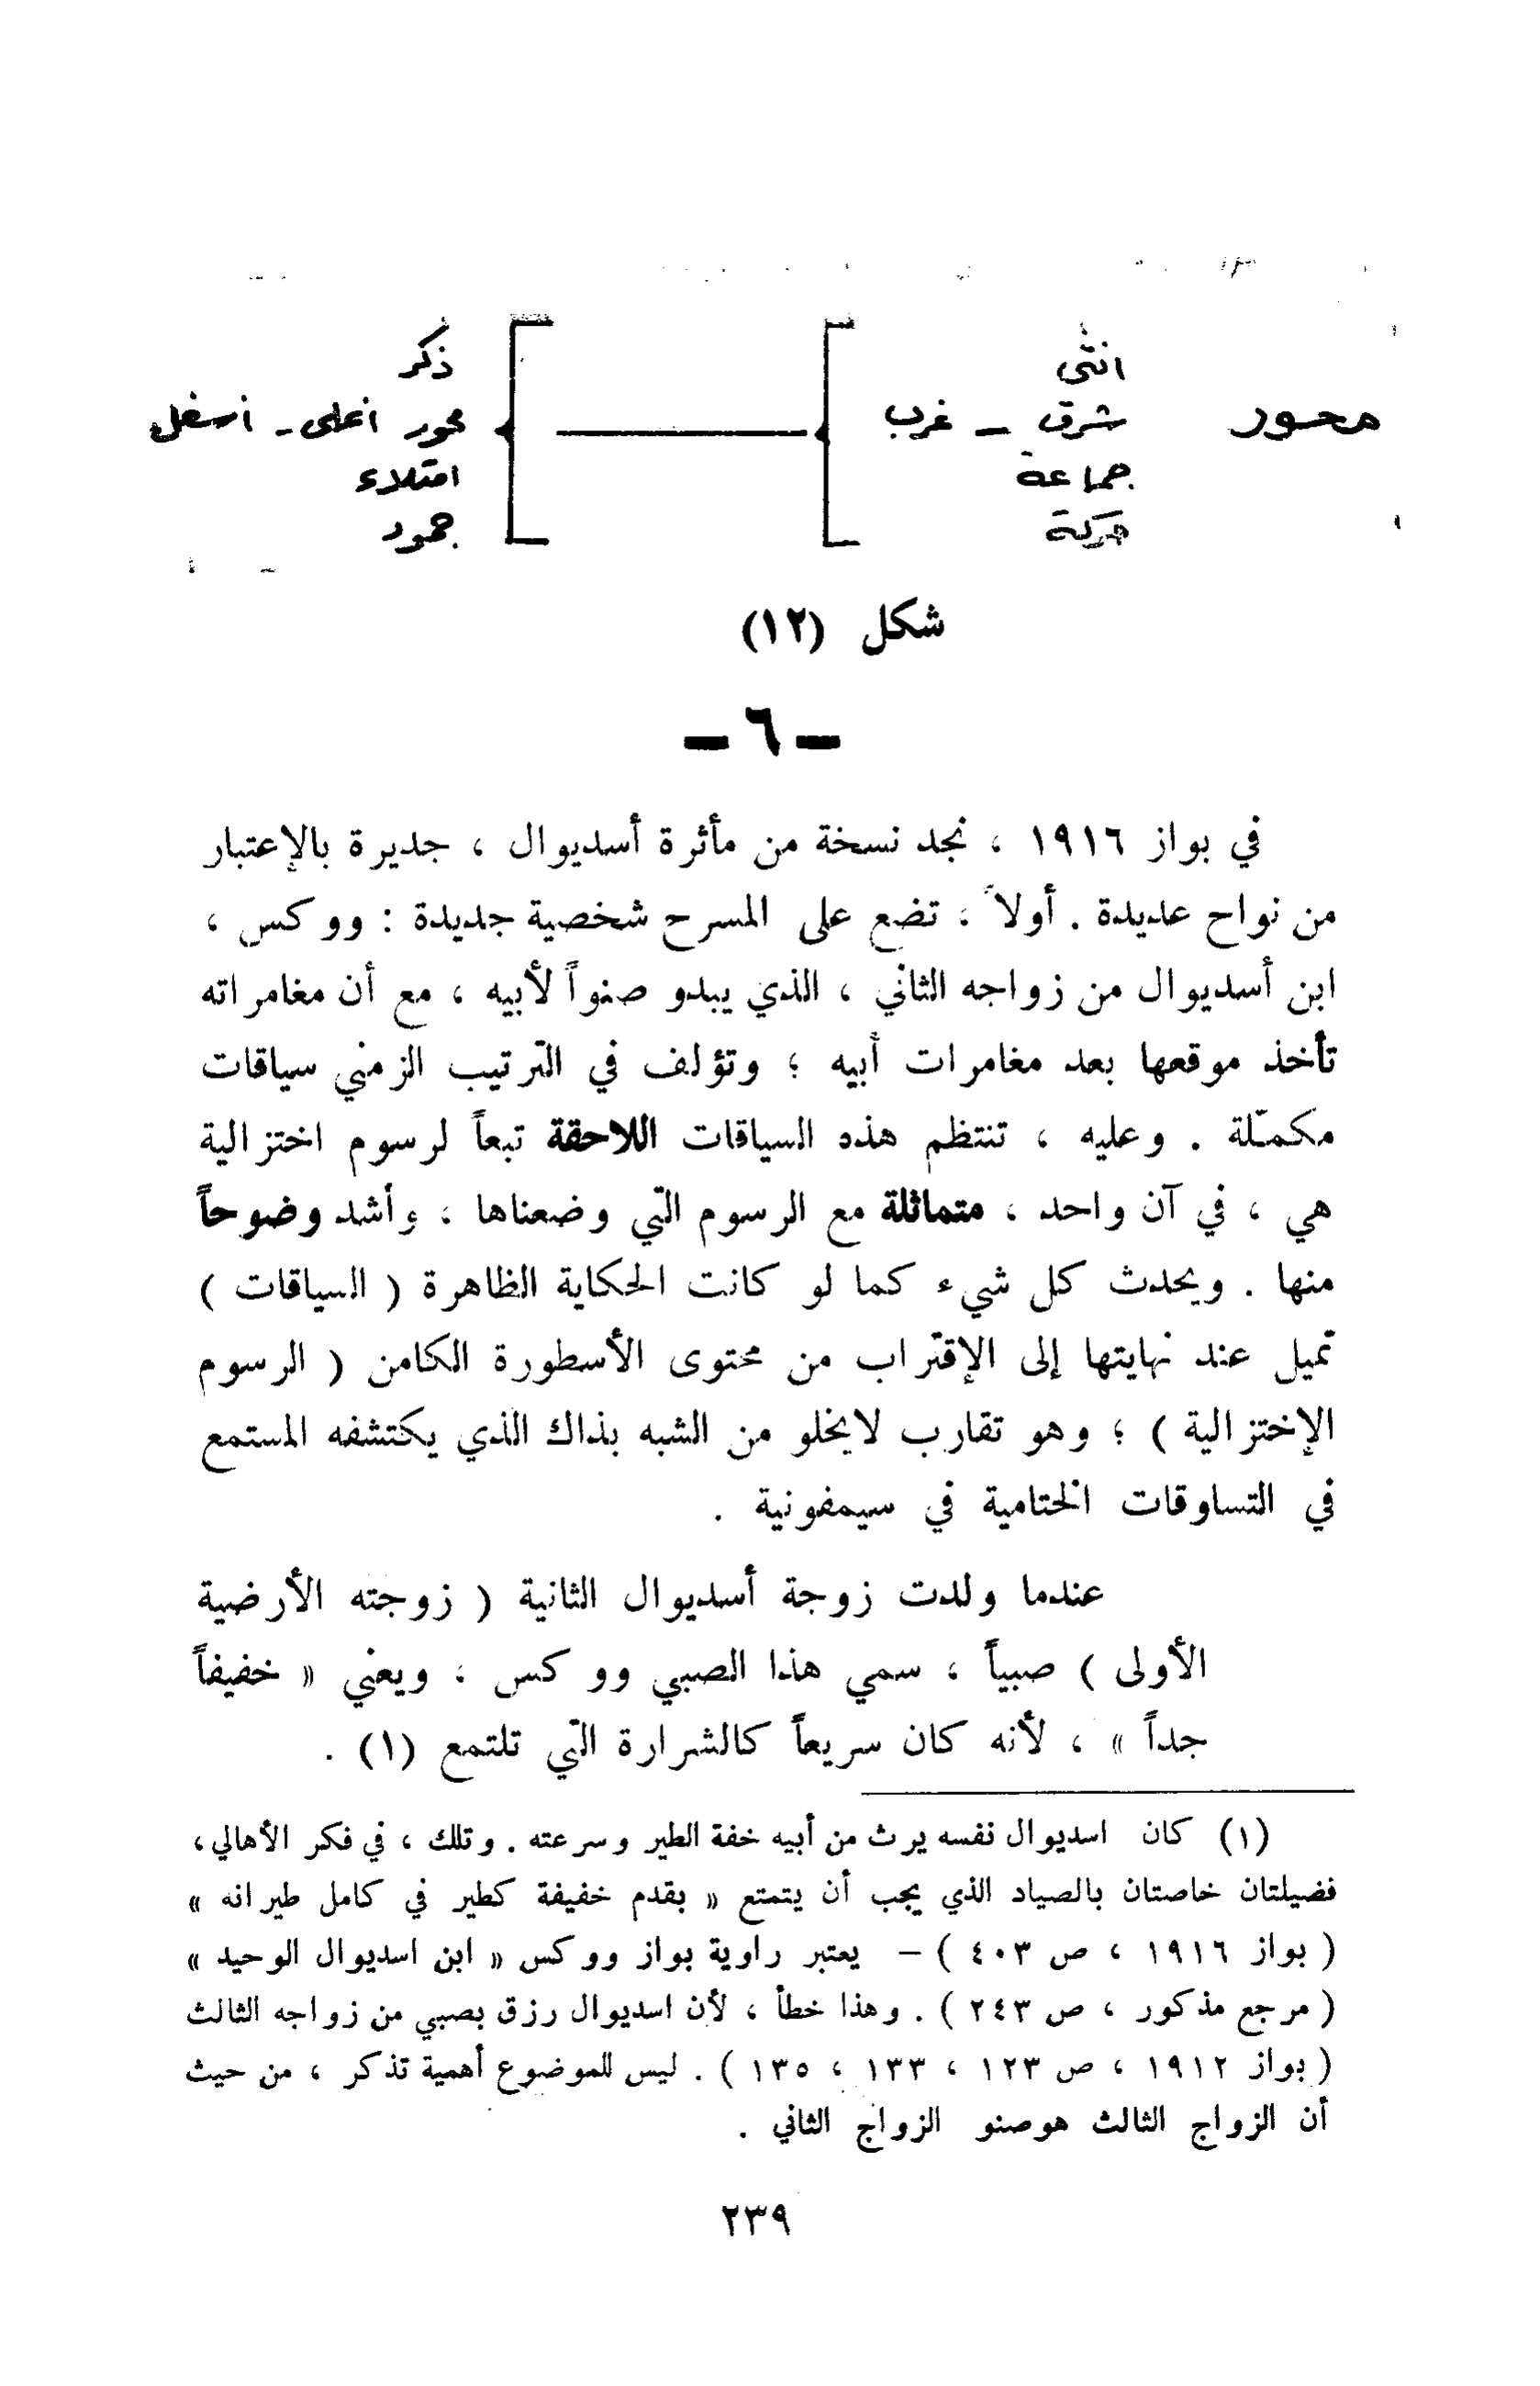 انثى ذكر
محور شرق - غرب محور اعلى - اسفل
جماعة امتلاء
حركة جمود
شكل (١٢)
- ٦ -
في بواز ١٩١٦ ، نجد نسخة من مأثرة أسديوال ، جديرة بالإعتبار
من نواح عديدة . أولاً ، تضع على المسرح شخصية جديدة : ووكس ،
ابن أسديوال من زواجه الثاني ، الذي يبدو صنواً لأبيه ، مع أن مغامراته
تأخذ موقعها بعد مغامرات أبيه ؛ وتؤلف في الترتيب الزمني سياقات
مكمّلة . وعليه ، تنتظم هذه السياقات اللاحقة تبعاً لرسوم اختزالية
هي ، في آن واحد ، متماثلة مع الرسوم التي وضعناها ، وأشد وضوحاً
منها . ويحدث كل شيء كما لو كانت الحكاية الظاهرة ( السياقات )
تميل عند نهايتها إلى الإقتراب من محتوى الأسطورة الكامن ( الرسوم
الإختزالية ) ؛ وهو تقارب لايخلو من الشبه بذاك الذي يكتشفه المستمع
في التساوقات الختامية في سيمفونية .
عندما ولدت زوجة أسديوال الثانية ( زوجته الأرضية
الأولى ) صبياً ، سمي هذا الصبي ووكس ، ويعني « خفيفاً
جداً » ، لأنه كان سريعاً كالشرارة التي تلتمع (١) .
(١) كان اسديوال نفسه يرث من أبيه خفة الطير وسرعته . وتلك ، في فكر الأهالي ،
فضيلتان خاصتان بالصياد الذي يجب أن يتمتع « بقدم خفيفة كطير في كامل طيرانه »
( بواز ١٩١٦ ، ص ٤٠٣ ) – يعتبر راوية بواز ووكس « ابن اسديوال الوحيد »
( مرجع مذكور ، ص ٢٤٣ ) . وهذا خطأ ، لأن اسديوال رزق بصبي من زواجه الثالث
( بواز ١٩١٢ ، ص ١٢٣ ، ١٣٣ ، ١٣٥ ) . ليس للموضوع أهمية تذكر ، من حيث
أن الزواج الثالث هوصنو الزواج الثاني .
٢٣٩